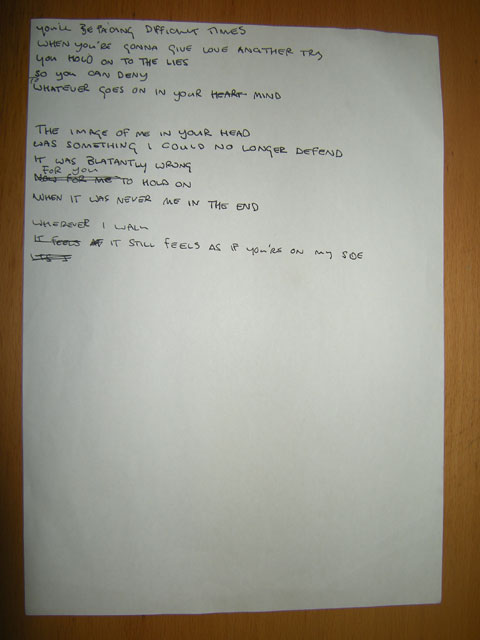 YOU'LL BE FACING DIFFICULT TIMES
WHEN YOU'RE GONNA GIVE LOVE ANOTHER TRY
YOU HOLD ON TO THE LIES
SO YOU CAN DENY
WHATEVER GOES ON IN YOUR HEART MIND
THE IMAGE OF ME IN YOUR HEAD
WAS SOMETHING I COULD NO LONGER DEFEND
IT WAS BLATANTLY WRONG
FOR YOU
NOW FOR ME TO HOLD ON
WHEN IT WAS NEVER ME IN THE END
WHEREVER I WALK
IT FEELS AS IT STILL FEELS AS IF YOU'RE ON MY SIDE